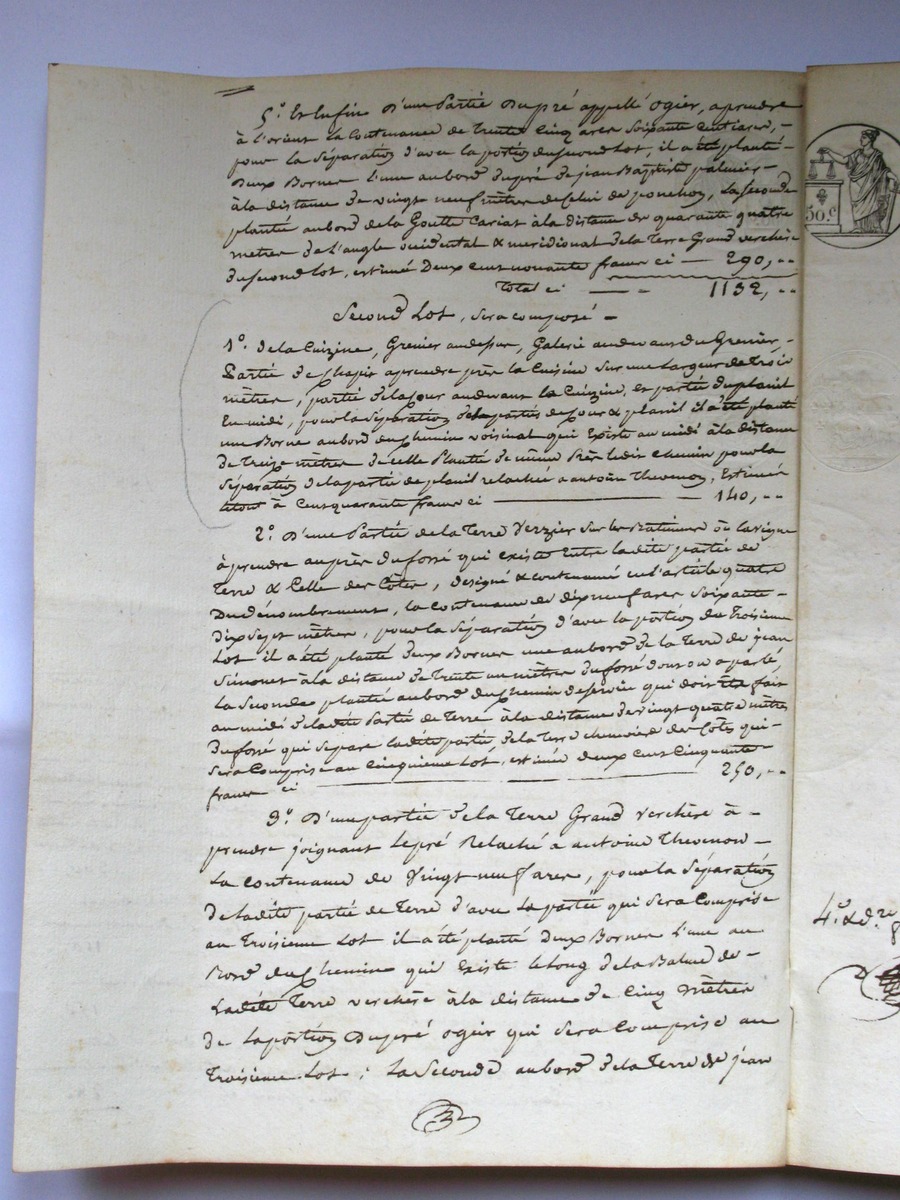 5.° Et Enfin D'une Partie Dupré appellé ogier, aprendre
à L'orient La Contenance de Trente Cinq ares Soixante Centiares, -
pour la Séparation d'avec la portion du second Lot, il a été planté -
Deux Bornes L'une au bord Dupré de jean Baptiste palmier -
à la distance de vingt neuf mètres de Celui de ponchon, La seconde
planté au bord de la Goutte Cariat à la distance de quarante quatre
metres de L'angle occidental & meridional de la Terre Grand verchère
du second Lot, estimé Deux cent nonante francs ci — 290, ..
Total ci — — 1132, ..
Second Lot, sera composé -
1.° De la Cuizine, Grenier au dessus, Galerie au devant du Grenier, -
Partie de Chapit aprendre près la Cuisine Sur une Largeur de Trois
mètres, partie de la Cour au devant la Cuizine, et partie du plaisit
En midi, pour la séparation de la partie de Cour & plaisit il a été planté
une Borne au bord du Chemin voisinal qui Existe au midi à la distance
de Treize mètres de celle Planté de même Près ledit chemin pour la
Séparation de la partie de plaisit relaché a antoine Thevenon, Estimée
le tout à Cent quarante francs ci — 140, ..
2.° D'une Partie de la Terre Verzier Sur les Batimens ou la vigne
à prendre auprès du fossé qui existe Entre ladite partie de
Terre & Celle des Côtes, designé & contenancé en l'article quatre
Du dénombrement, la Contenance de dix neuf ares Soixante -
Dix Sept mètres, pour la Séparation d'avec la portion du Troisieme
Lot il a été planté deux Bornes une au bord de la Terre de jean
Simonet à la distance de Trente un mètres du fossé dont on a parlé,
la Seconde plantée au bord du Chemin deservice qui doit être fait
au midi de ladite Partie de Terre à la distance de vingt quatre mètres
du fossé qui separe ladite partie, de la Terre cheneviere des Côtes qui -
Sera Comprise au Cinquieme Lot, estimée deux Cent Cinquante
francs ci — 250, ..
3.° D'une partie de la Terre Grand verchère à -
prendre joignant Lepré Relaché à antoine Thevenon -
La contenance de Vingt neuf ares, pour la Séparation
de ladite partie de Terre d'avec La partie qui Sera Comprise
au Troisieme Lot il a été planté Deux Bornes L'une au
Bord du Chemin qui Existe le long de la Balme de -
Ladite Terre verchère à la distance de Cinq mètres
de La portion Dupré ogier qui sera Comprise au
Troisieme Lot ; La Seconde au bord de la Terre de jean
50.c